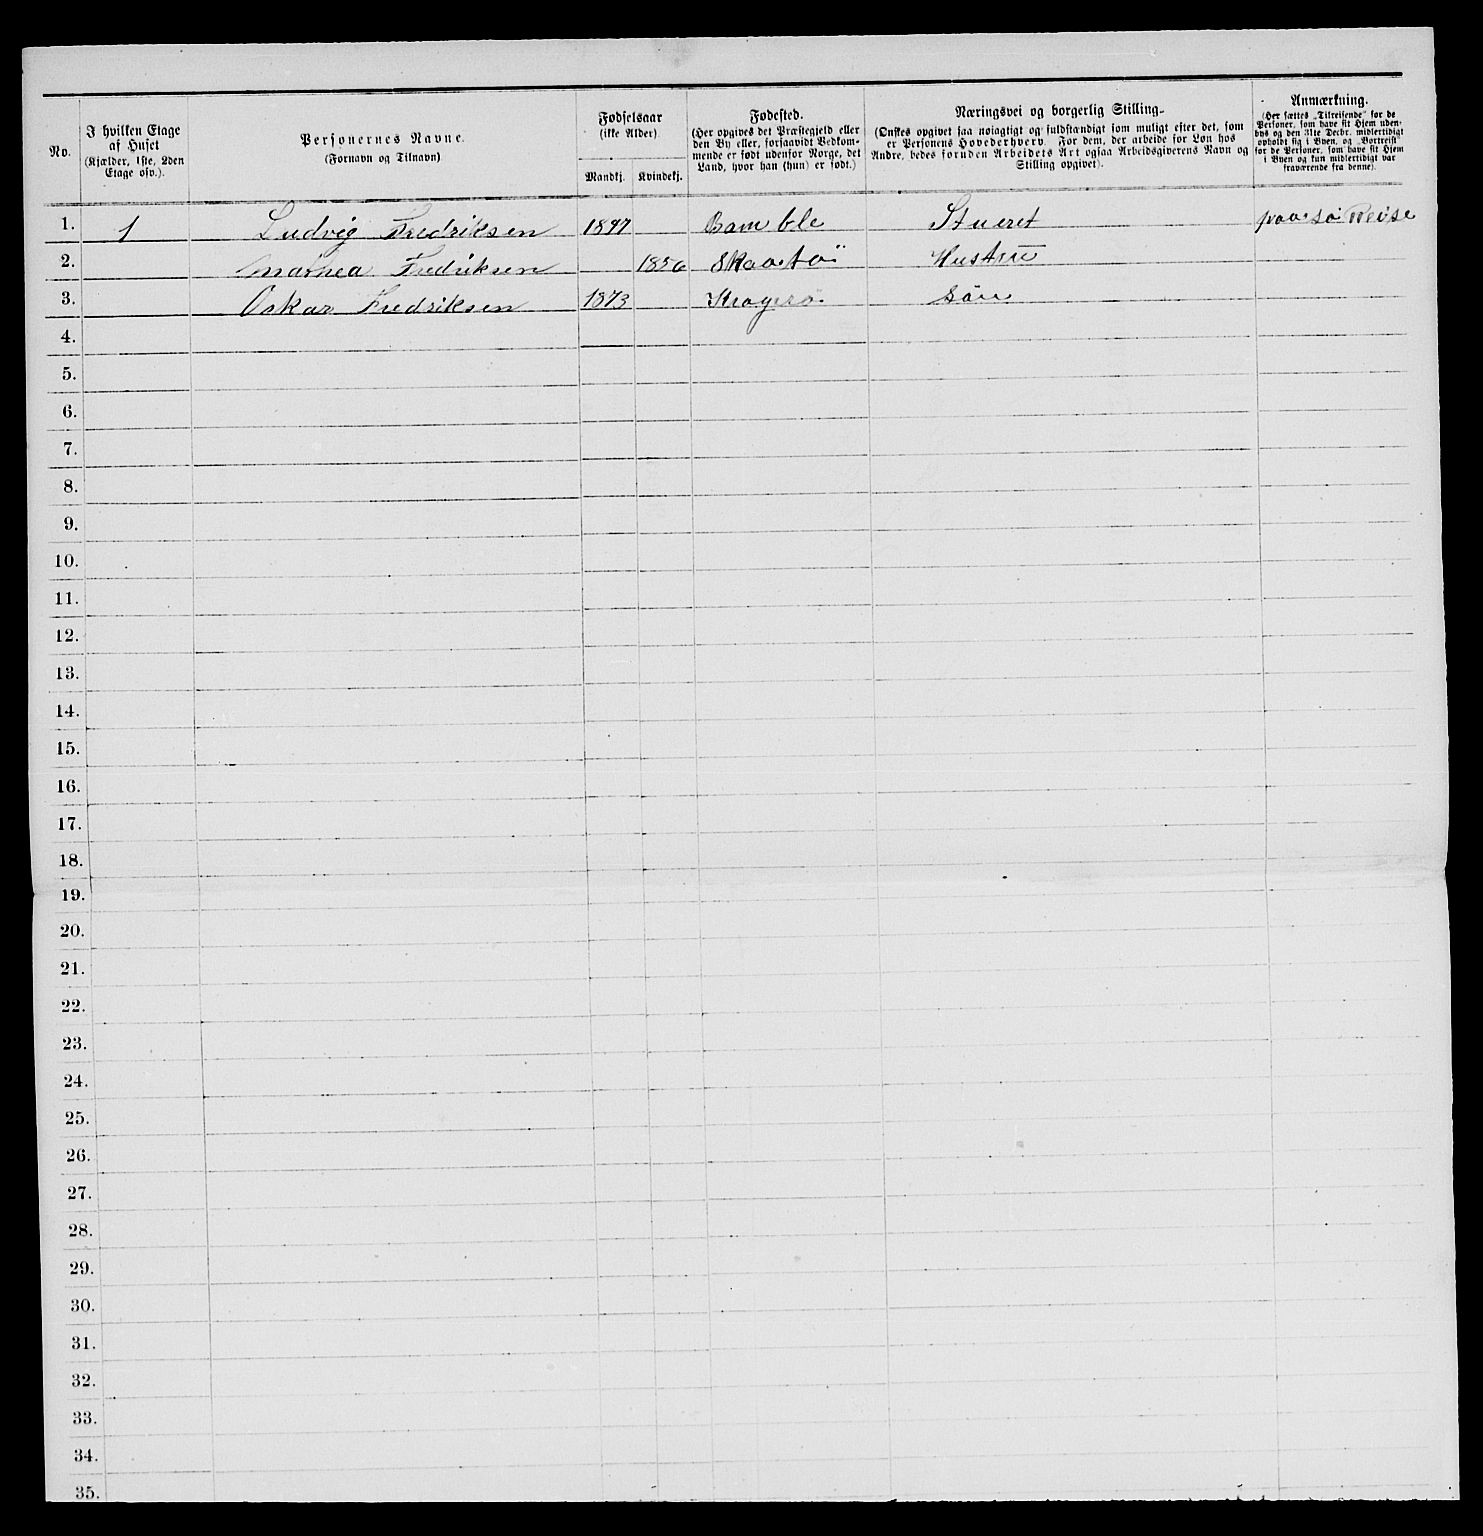 No.
I hvilken Etage
af Huset
(Kjælder, 1ste, 2den
Etage osv.).
Personernes Navne.
(Fornavn og Tilnavn)
Fødselsaar
(ikke Alder).
Mandkj. Kvindekj.
Fødested.
(Her opgives det Præstegjeld eller
den By eller, forsaavidt Vedkom-
mende er født udenfor Norge, det
Land, hvor han (hun) er født.)
Næringsvei og borgerlig Stilling.
(Ønskes opgivet saa nøiagtigt og fuldstændigt som muligt efter det, som
er Personens Hovederhverv. For dem, der arbeide for Løn hos
Andre, bedes foruden Arbeidets Art ogsaa Arbeidsgiverens Navn og
Stilling opgivet).
Anmærkning.
(Her sættes „Tilreisende“ for de
Personer, som have sit Hjem uden-
bys og den 31te Decbr. midlertidigt
opholdt sig i Byen, og „Bortreist“
for de Personer, som have sit Hjem
i Byen og kun midlertidigt var
fraværende fra denne).
1. 1 Ludvig Fredriksen 1847 Bamble Stueret paa Sø Reise
2. Mainea Fredriksen 1850 Skaatö Hustru
3. Oskar Fredriksen 1873 Kragerö Sön
4.
5.
6.
7.
8.
9.
10.
11.
12.
13.
14.
15.
16.
17.
18.
19.
20.
21.
22.
23.
24.
25.
26.
27.
28.
29.
30.
31.
32.
33.
34.
35.